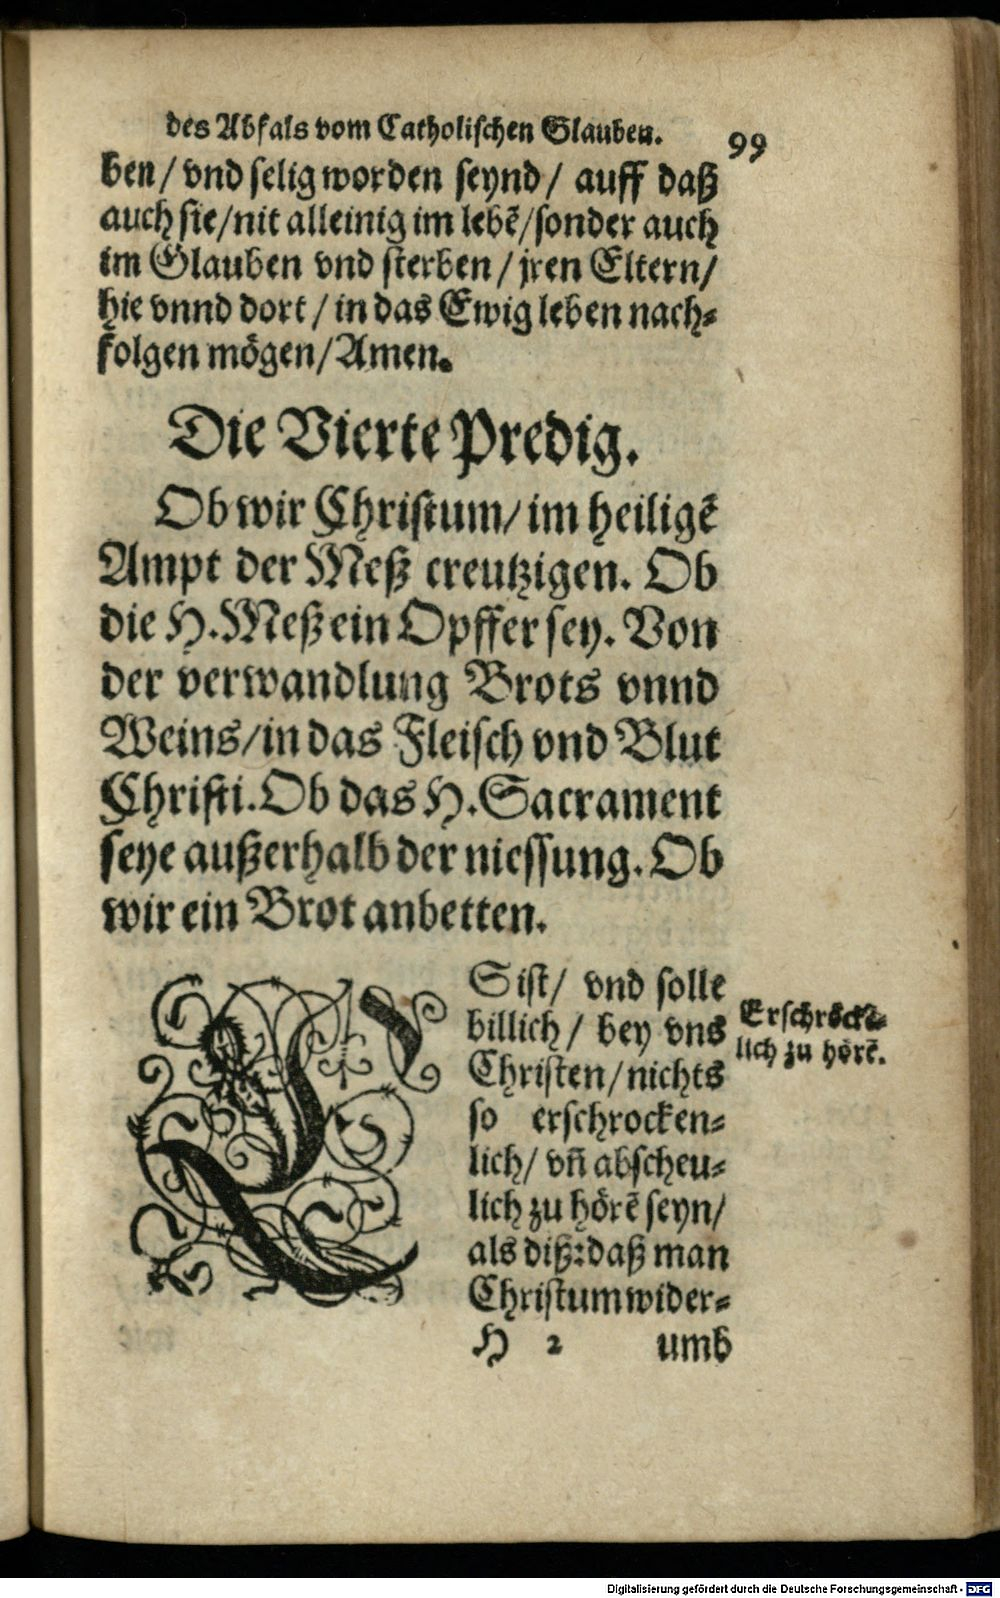 des Abfals vom Catholischen Glauben. 99
ben / vnd selig worden seynd / auff daß
auch sie / nit alleinig im lebẽ / sonder auch
im Glauben vnd sterben / jren Eltern /
hie vnnd dort / in das Ewig leben nach-
folgen mögen / Amen.
Die Vierte Predig.
Ob wir Christum / im heiligẽ
Ampt der Meß creutzigen. Ob
die H. Meß ein Opffer sey. Von
der verwandlung Brots vnnd
Weins / in das Fleisch vnd Blut
Christi. Ob das H. Sacrament
seye außerhalb der niessung. Ob
wir ein Brot anbetten.
ESist / vnd solle
billich / bey vns
Christen / nichts
so erschrocken-
lich / vñ abscheu-
lich zu hörẽ seyn /
als diß: daß man
Christum wider-
Erschröck-
lich zu hörẽ.
H 2 umb
Digitalisierung gefördert durch die Deutsche Forschungsgemeinschaft - DFG